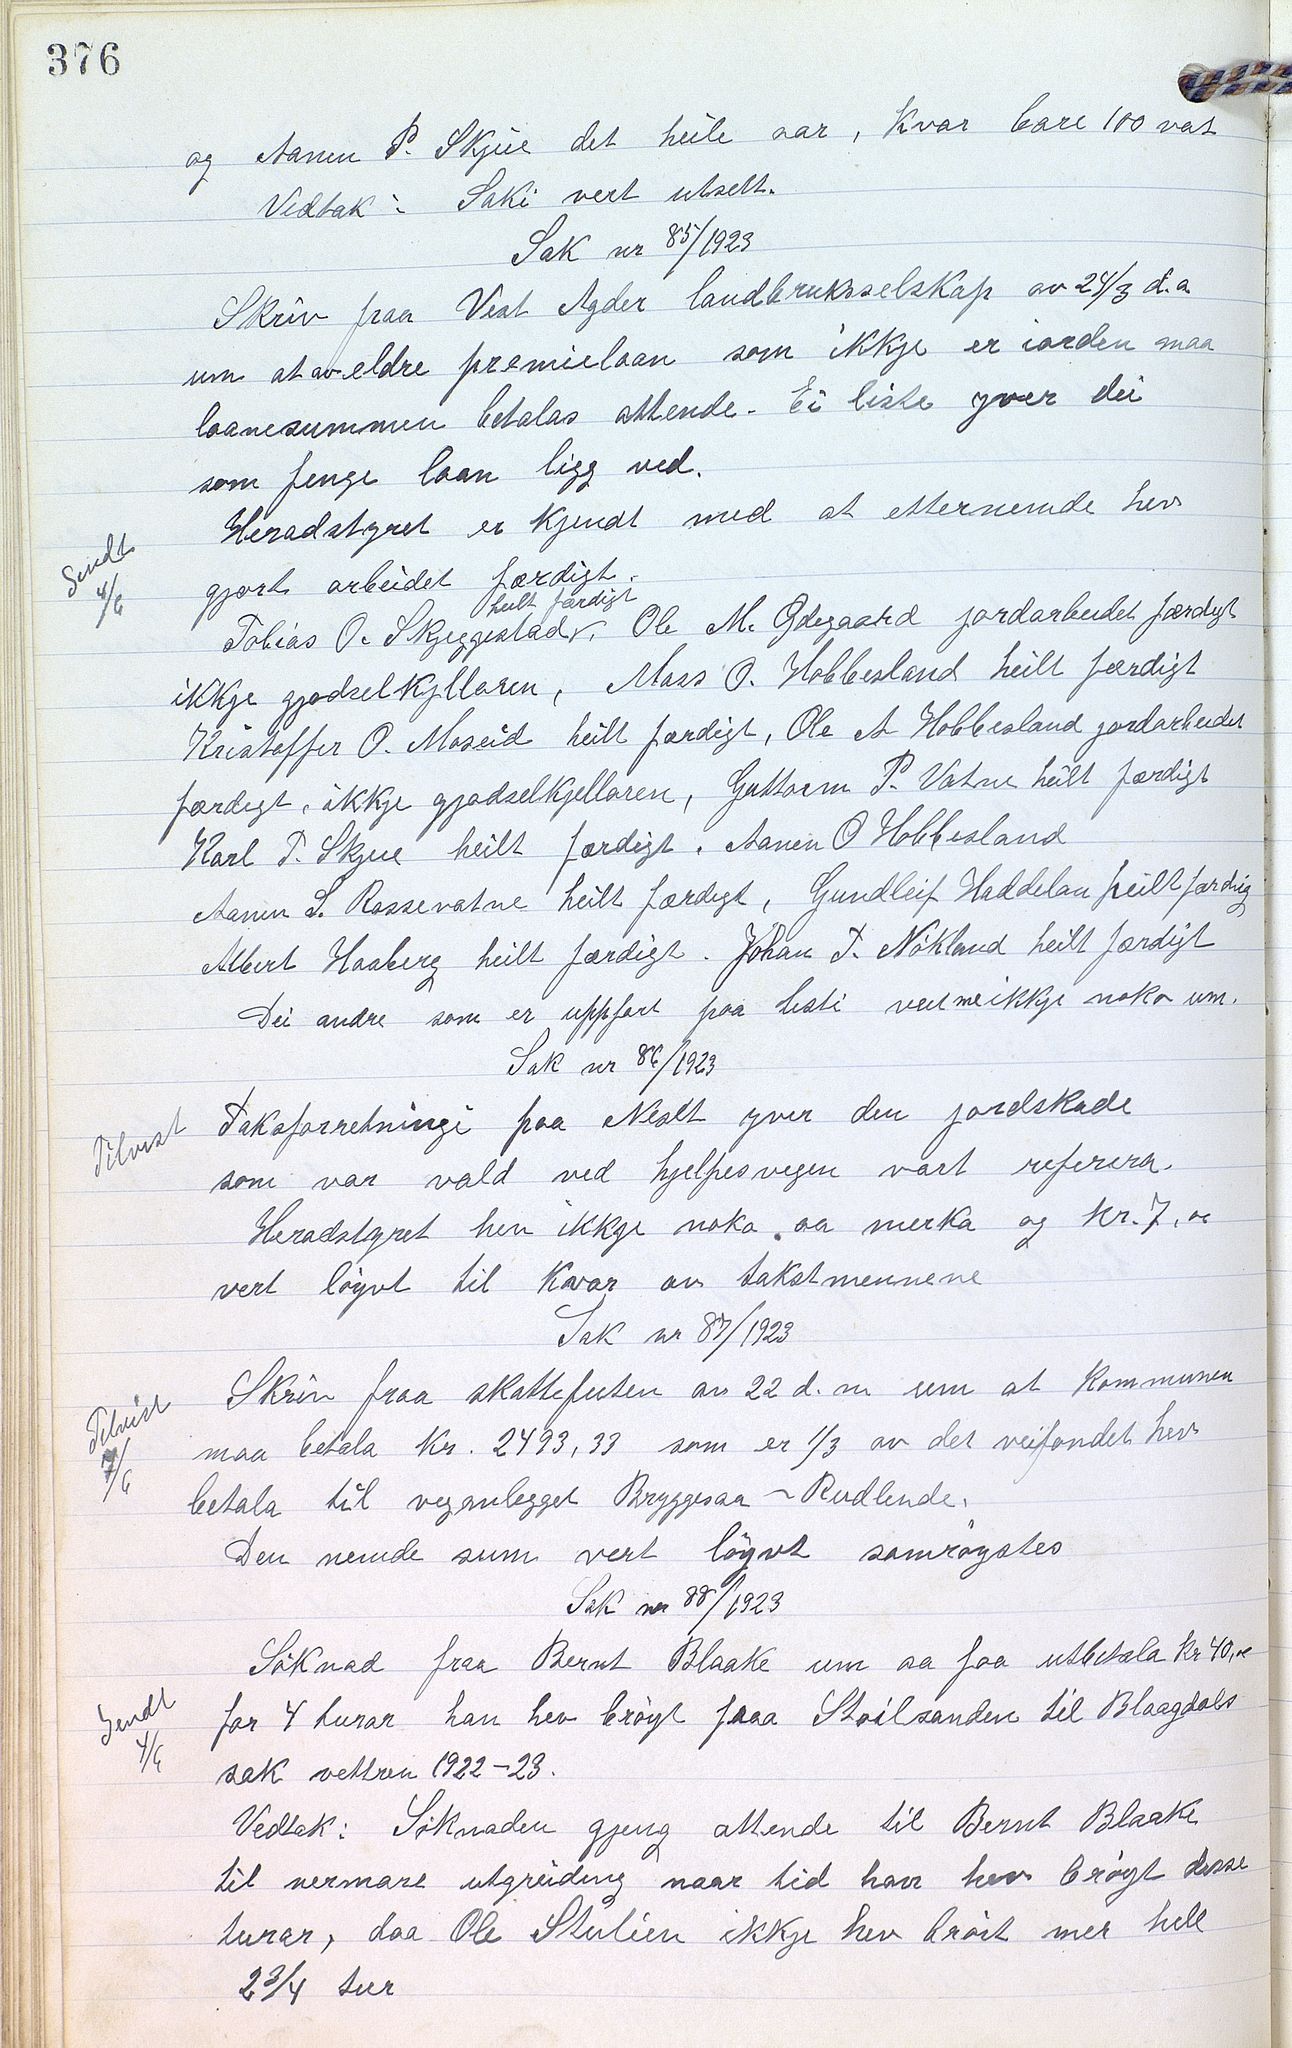 376
og Aanen P. Skjeie det heile aar, kvar bare 100 vat
Vedtak: Saki vert utsett.
Sak nr 85/1923
Skriv fraa Vest Agder landbruksselskap av 24/3 d.a
um at av eldre premielaan som ikkje er iorden maa
laanesummen betalas attende. Ei liste yver dei
som fenge laan ligg ved.
Heradstyret er kjendt med at etternemde hev
Sendt
4/6
gjort arbeidet færdigt.
heilt færdigt
Tobias O. Skjeggestad v. Ole M. Ødegaard jordarbeidet færdigt
ikkje gjødselkjellaren, Mass O. Hobbesland heilt færdigt
Kristoffer O. Moseid heilt færdigt, Ole A Hobbesland jordarbeidet
færdigt, ikkje gjødselkjellaren, Guttorm P. Vatne heilt færdigt
Karl T. Skjeie heilt færdigt. Aanen O Hobbesland
Aanen S. Rossevatne heilt færdigt, Gundleif Haddelan heilt færdig
Albert Haaberg heilt færdigt. Johan T. Nökland heilt færdigt
Dei andre som er uppfört paa listi veit me ikkje noko um.
Sak nr 86/1923
Tilvist
Taksforretningi paa Neslt yver den jordskade
som var vald ved hjelpesvegen vart referera.
Heradstyret hev ikkje noko aa merka og kr. 7,00
vert löyvt til kvar av takstmennene
Sak nr 87/1923
Skriv fraa skattefuten av 22 d.m um at kommunen
Tilvist
7/6
maa betala kr. 2493,33 som er 1/3 av det veifondet hev
betala til veganlegget Bryggesaa - Rudlende.
Den nemde sum vert löyvt samröystes
Sak nr 88/1923
Söknad fraa Bernt Blaake um aa faa utbetala kr 40,00
Sendt
4/6
for 4 turar han hev bröyt fraa Stoilsanden til Blaagdals
sak vettren 1922-23.
Vedtak: Söknaden gjeng attende til Bernt Blaake
til nermare utgreiding naar tid han hev bröyt desse
turar, daa Ole Stulien ikkje hev bröit mer hell
2 3/4 tur